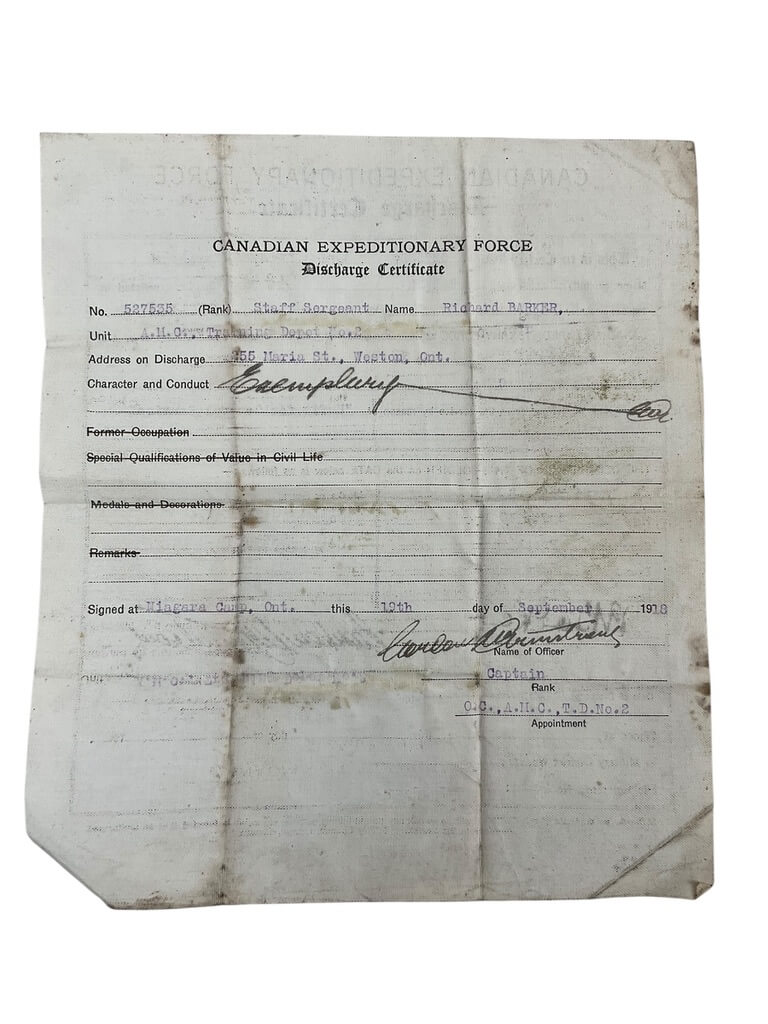 CANADIAN EXPEDITIONARY FORCE
Discharge Certificate
No. 527535 (Rank) Staff Sergeant Name Richard BARKER,
Unit A.M.C., Training Depot No.2
Address on Discharge 55 Maria St., Weston, Ont.
Character and Conduct Exemplary
Former Occupation
Special Qualifications of Value in Civil Life
Medals and Decorations
Remarks
Signed at Niagara Camp, Ont. this 19th day of September 1918
Gordon Armstrong
Name of Officer
Captain
Rank
O.C., A.M.C., T.D.No.2
Appointment